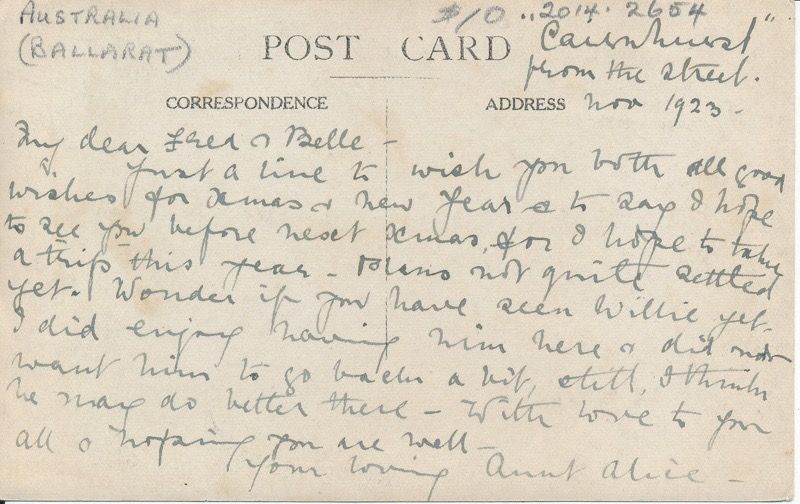 AUSTRALIA
(BALLARAT)
$10
2014. 2654
POST CARD
"Cairnhurst"
from the street.
CORRESPONDENCE
ADDRESS
Nov 1923-
My dear Fred & Belle -
Just a line to wish you both all good
wishes for Xmas & New Year & to say I hope
to see you before next Xmas, for I hope to take
a trip this year - Plans not quite settled
yet. Wonder if you have seen Willie yet.
I did enjoy having him here & did not
want him to go back a bit, still, I think
he may do better there - With love to you
all & hoping you are well -
Your loving Aunt Alice -